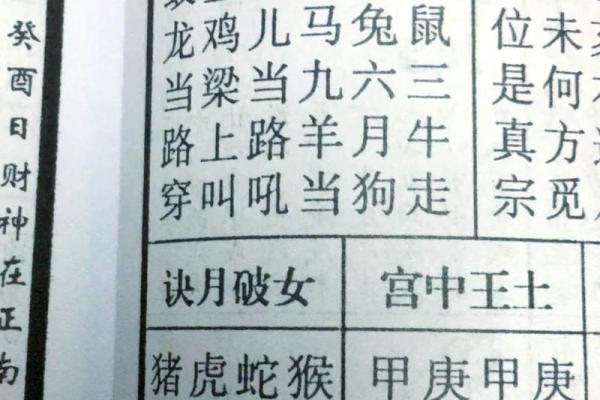 未何方觅
位是真宗
鼠三牛走
兔六月狗
马九羊当
儿当路吼
鸡梁上叫
龙当路穿
土王中宫
女破月诀
庚甲庚甲
猴蛇虎猪
癸酉日财神在正南